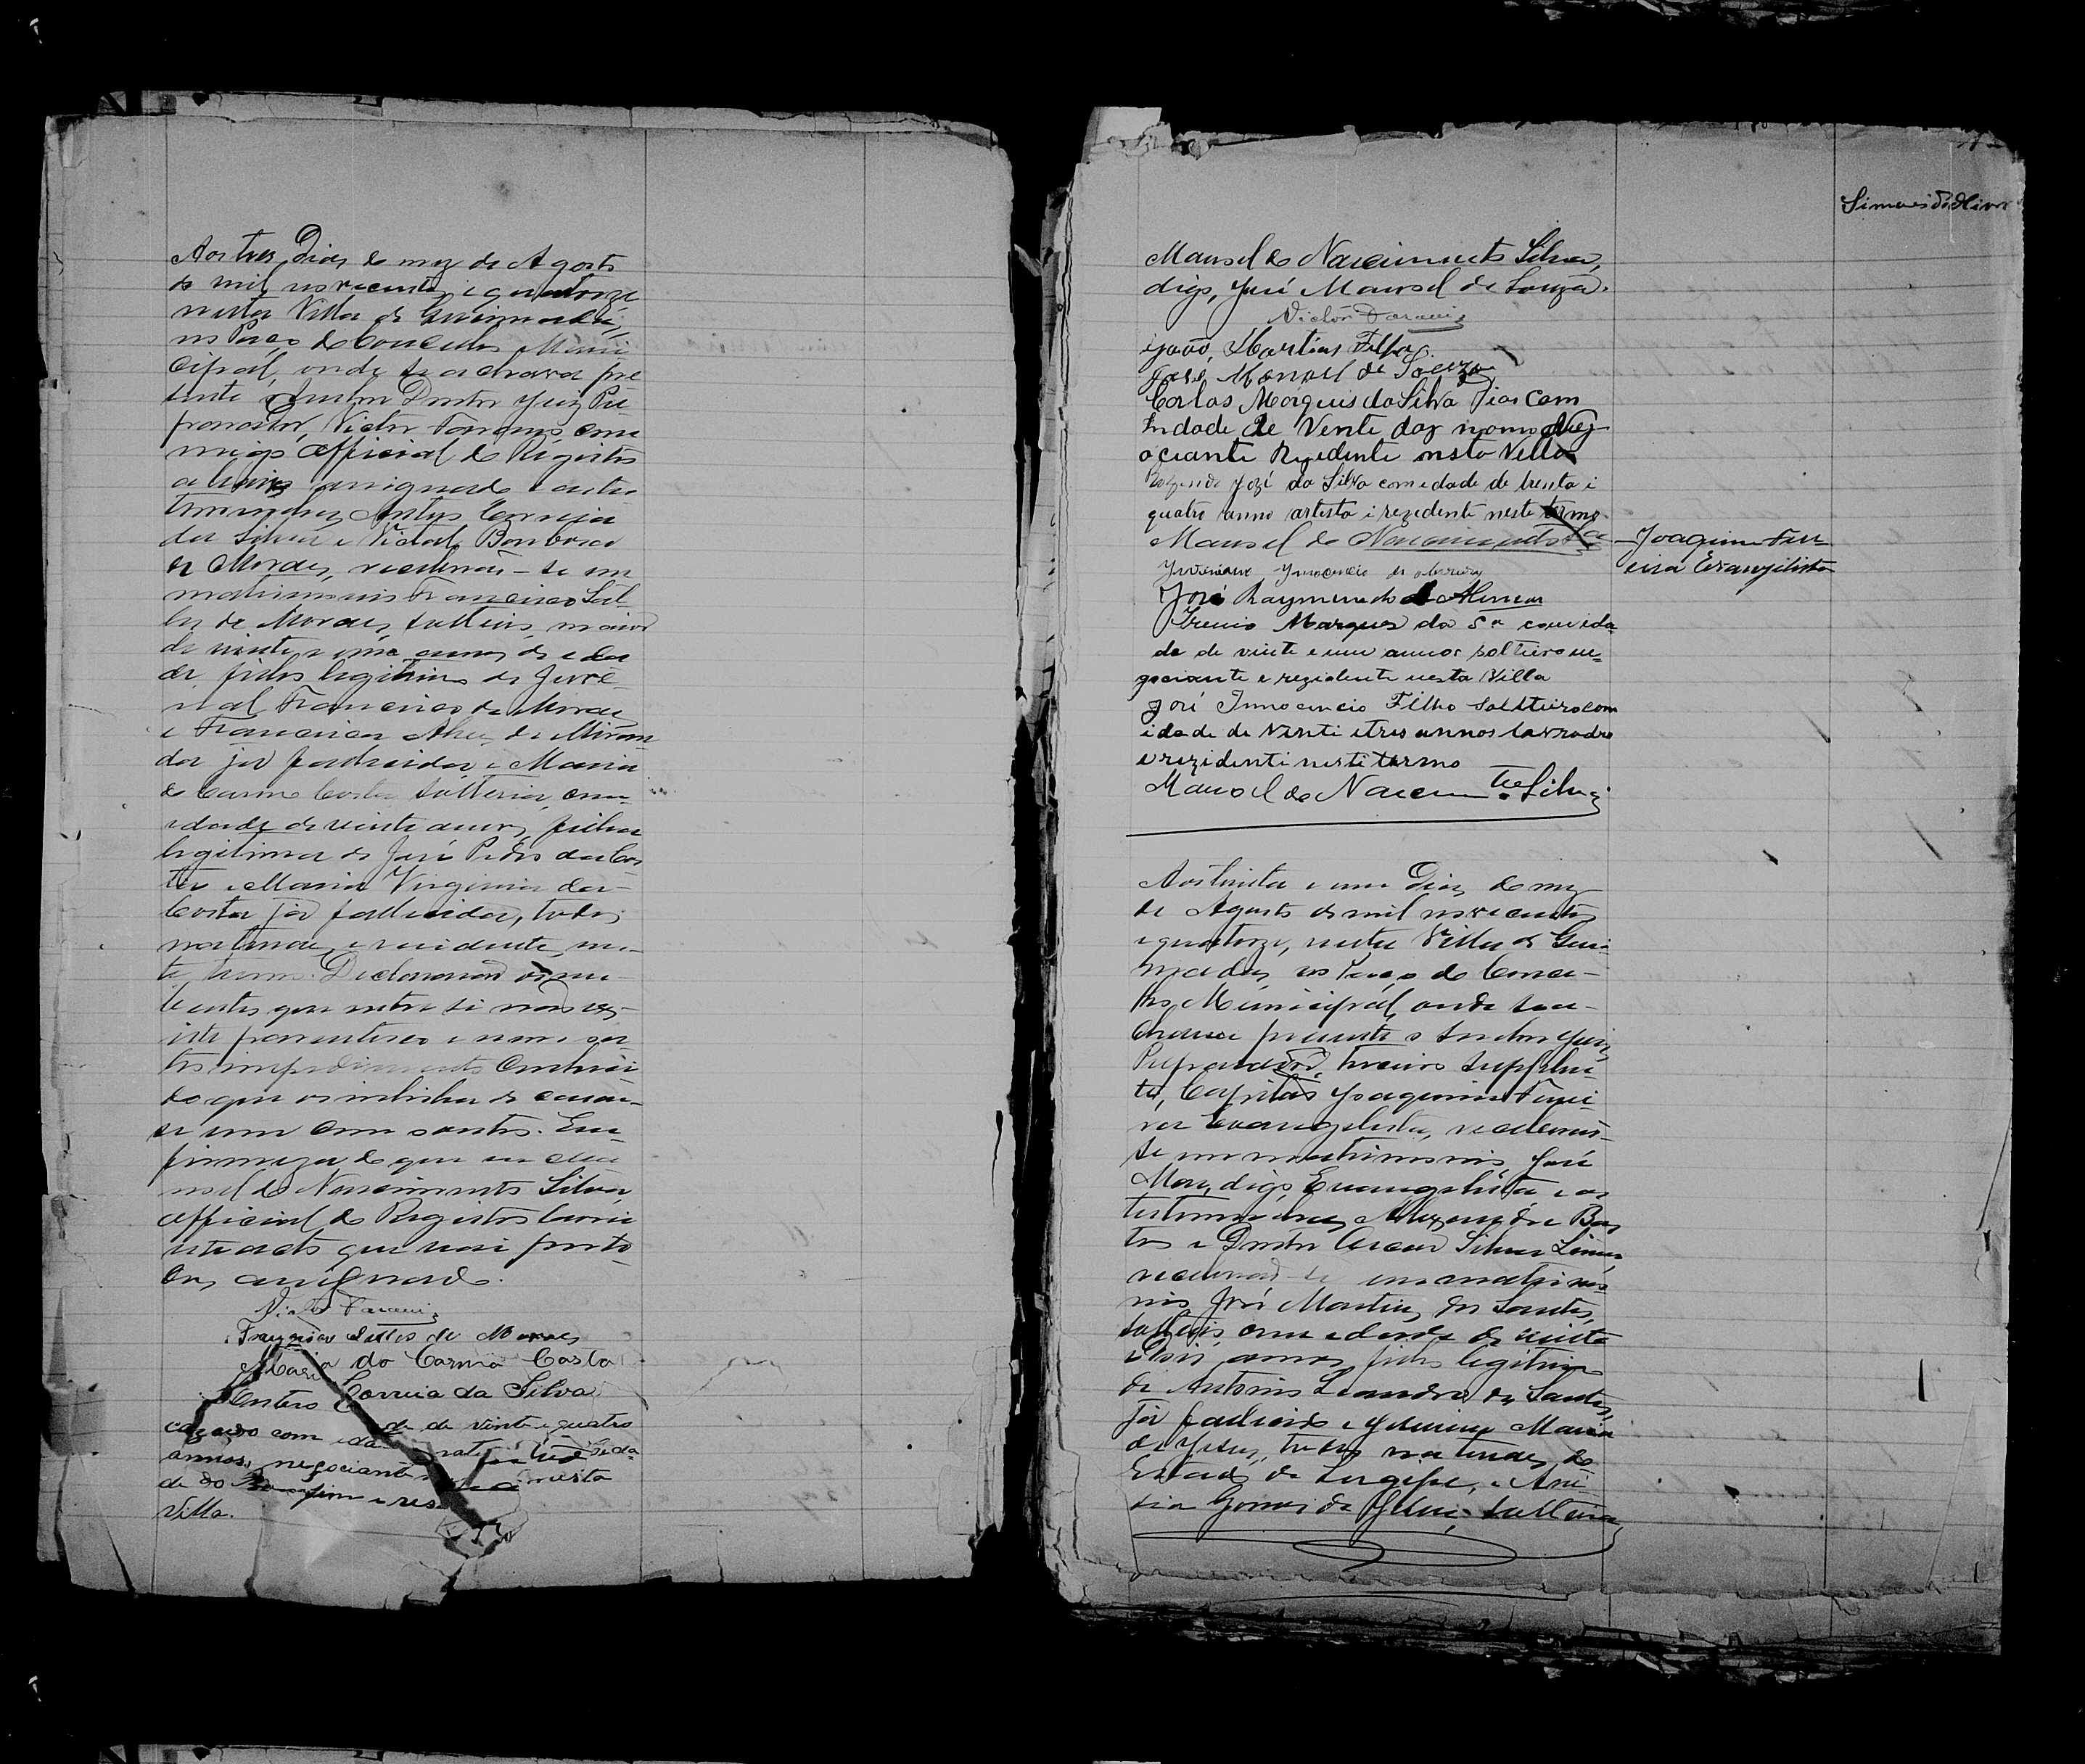 Aos tres Dias do mez de Agosto
de mil novecentos e quatorze
nesta Villa de Queimadas,
no Paço do Concelho Muni
cipal, onde se achava pre
sente o Senhor Doutor Juiz Pre
parador, Victor Farani, com
migo Official do Registro
abaixo assignado e as tes
temunhas Antero Correia
da Silva e Vidal Bomboca
de Moraes, receberão-se em
matrimonio Francisco Sal
les de Moraes, solteiro, maior
de vinte e um annos de ida
de, filho legitimo de Juve
nal Francisco de Moraes
e Francisca Alves de Miran
da já fallecida e Maria
do Carmo Costa solteira, com
idade de vinte annos, filha
legitima de José Pedro da Cos
ta e Maria Virginia da
Costa já fallecida, todos
naturaes e residentes nes
te termo. Declararão os nu
bentes que entre si não exis
iste parentesco e nem ou
tro impedimento
do que os inhiba de casar
se um com outro. Em
firmeza do que eu Ma
noel do Nascimento Silva,
official do Registro lavrei
este acto que vai por to
dos assignado.
Victor Farani
Francisco Salles de Moraes
Maria do Carmo Costa
Antero Correia da Silva
casado com idade de vinte e quatro
annos, negociante natural da cida
de do Bomfim e res nesta
Villa.
Simões d'Oliver
Manoel do Nascimento Silva,
digo, José Manoel de Souza.
Victor Farani
João Martins Filho
José Manoel de Souza
Carlos Marques da Silva Dias Com
Indade de Vente dos nomo Neg
ociante Rezidente nesta Villa
José da Silva com edade de trenta i
quatro anno artista i rezidente neste termo
Manoel do Nascimento Sa
Juveniano Innocencio de Moraes
José Raymundo de Alencar
Irenio Marques da Sa com ida
de de vinte e um annos solteiro ne-
gociante e rezidente nesta Villa
José Innocencio Filho Soltteiro com
idade de Vinti e tres annos lavrador
e rezidenti nesti termo
Manoel do Nascim to Silva
Joaquim Ferr
eira Evangelista
Aos trinta e um Dias do mez
de Agosto de mil novecentos
e quatorze, nesta Villa de Quei
madas, no Paço do Conce-
lho Municipal, onde se a-
chava presente o Senhor Juiz
Preparador, terceiro Supplen
te, Capitão Joaquim Ferrei-
ra Evangelista, receberão-
se em matrimonio José
Mar, digo, Evangelista e as
testemunhas Alexandre Bas
tos e Doutor Cesar Silva Lima,
receberão-se em matrimo
nio José Martins dos Santos,
solteiro, com edade de vinte
e dois annos, filho legitimo
de Antonio Leandro dos Santos,
já fallecido e Maria
de Jesus, todos naturaes do
Estado de Sergipe, e
Gomes de Jesus, solteira,